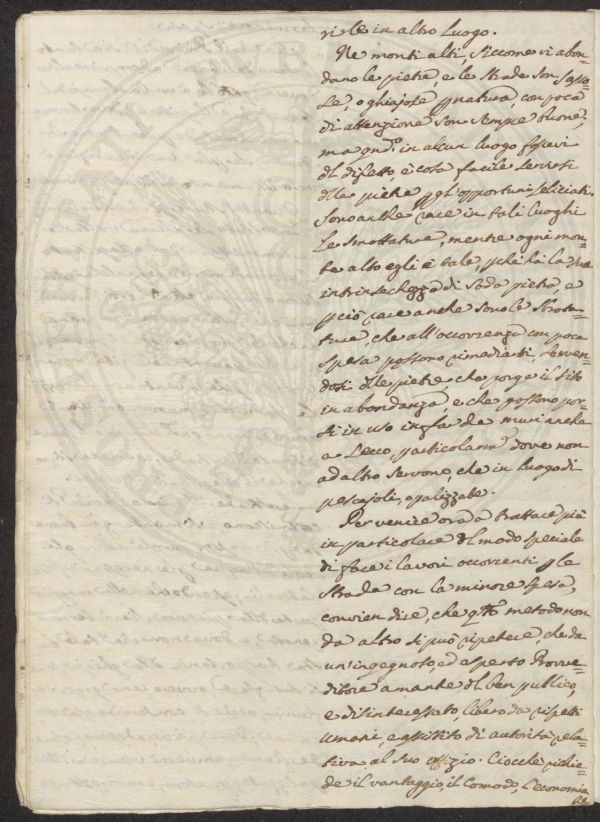 rile in altro Luogo.
Ne monti alti, siccome vi abon=
dano le pietre, e le strade son sasso=
se, o ghiajose p natura, con poca
di attenzione son sempre buone,
ma qndo in alcun luogo fossevi
dl difetto è cosa facile servirsi
dlle pietre p gl'opportuni seliciati.
Sono anche rare in tali luoghi
Le smottature, mentre ogni mon=
te alto egli è tale, pchè hà la sua
intrinsechezza di soda pietra, e
pciò rare anche sono le
ture, che all'occorrenza con poca
spesa possono rimediarsi, serven=
dosi dlle pietre, che porge il sito
in abondanza, e che possono por=
si in uso in far de muri anche
a secco, particolarme dove non
ad altro servono, che in luogo di
pescajoli, o palizzate.
Per venire ora a trattare più
in particolare dl modo speciale
di fare i lavori occorrenti p le
strade con la minore spesa,
convien dire, che qsto metodo non
da altro si può ripetere, che da
un'ingegnoso, ed asperto Provve=
ditore amante dl ben publico,
e disinteressato, libero da rispetti
umani, e assistito di autorità rela=
tiva al suo offizio. Ciocche richie=
de il vantaggio, il Comodo, L'economia